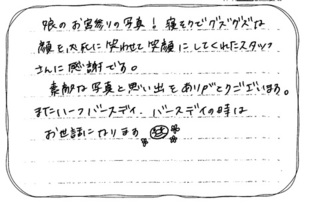 娘のお宮参りの写真！寝そクでグズグズな
顔を次氏に笑わせて笑顔にしてくれたスタッフ
さんに感謝です。
素敵な写真と思い出をありがとうございます。
またハーフバースデイ、バースデイの時は
お世話になります